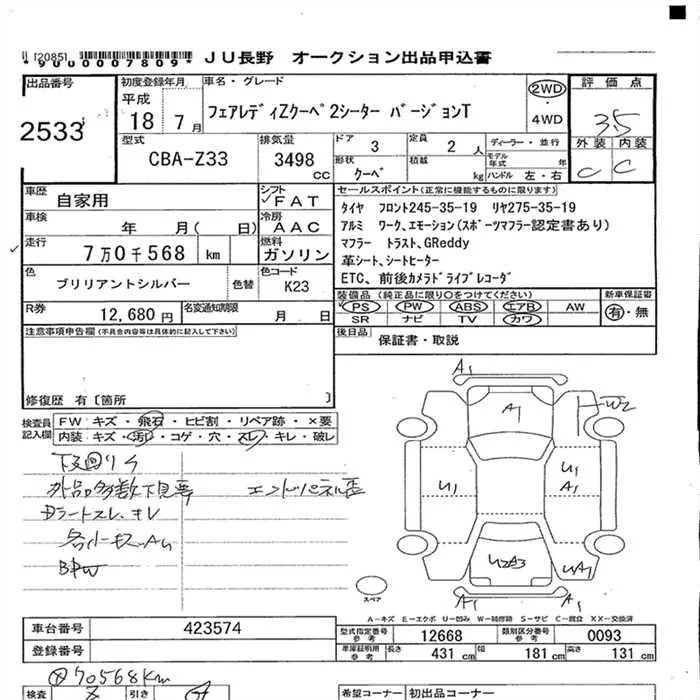 [120851
*9000007809* JU長野 オークション出品申込書
出品番号 2533
初度登録年月 平成 18 7月
車名・グレード フェアレディZクーペ2シーター バージョンT
2WD ・ 4WD
評価点 3.5
外装 C 内装 C
型式 CBA-Z33
排気量 3498 cc
ドア 3
定員 2 人
形状 クーペ
積載 kg
ディーラー・並行
モデル年式 年
ハンドル 左・右
車歴 自家用
シフト FAT
車検 年 月( 日)
冷房 AAC
走行 7万0千568 km
燃料 ガソリン
色 ブリリアントシルバー 色替
色コード K23
R券 12,680 円
名変通知期限 月 日
セールスポイント(正常に機能するものに限ります)
タイヤ フロント245-35-19 リヤ275-35-19
アルミ ワーク、エモーション(スポーツマフラー認定書あり)
マフラー トラスト、GReddy
革シート、シートヒーター
ETC、前後カメラドライブレコーダ
装備品(純正品に限り○をつけてください) 新車保証書
PS PW ABS エアB AW 有・無
SR ナビ TV カワ
後日品 保証書・取説
注意事項申告欄(不具合内容等は具体的に記入して下さい)
修復歴 有〔箇所 〕
検査員記入欄
FW キズ・飛石・ヒビ割・リペア跡・×要
内装 キズ・汚れ・コゲ・穴・スレ・キレ・破レ
下廻りサ
外品多数下見要 エンドパネル歪
スレ、キレ
A1
A1
W2
U1
U1
A1
U2A3
UA1
A1
A1
スペア
A-キズ E-エクボ U-凹み W-補修跡 S-サビ C-腐食 XX-交換済
車台番号 423574
登録番号
型式指定番号 参考 12668 類別区分番号 参考 0093
車庫証明用 参考 長さ 431 cm 幅 181 cm 高さ 131 cm
70568Km
検査 引き
希望コーナー 初出品コーナー